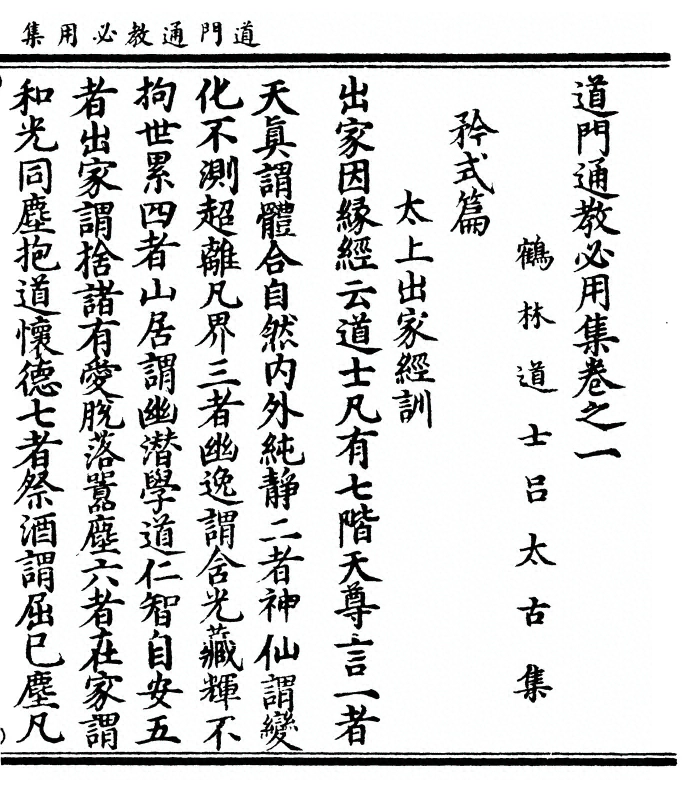 道門通教必用集
道門通教必用集卷之一
鶴林道士呂太古集
矜式篇
太上出家經訓
出家因緣經云道士凡有七階天尊言一者
天眞謂體合自然内外純靜二者神仙謂變
化不測超離凡界三者幽逸謂含光藏輝不
拘世累四者山居謂幽潜學道仁智自安五
者出家謂捨諸有愛脱落嚣塵六者在家謂
和光同塵抱道懷德七者祭酒謂屈己塵凡